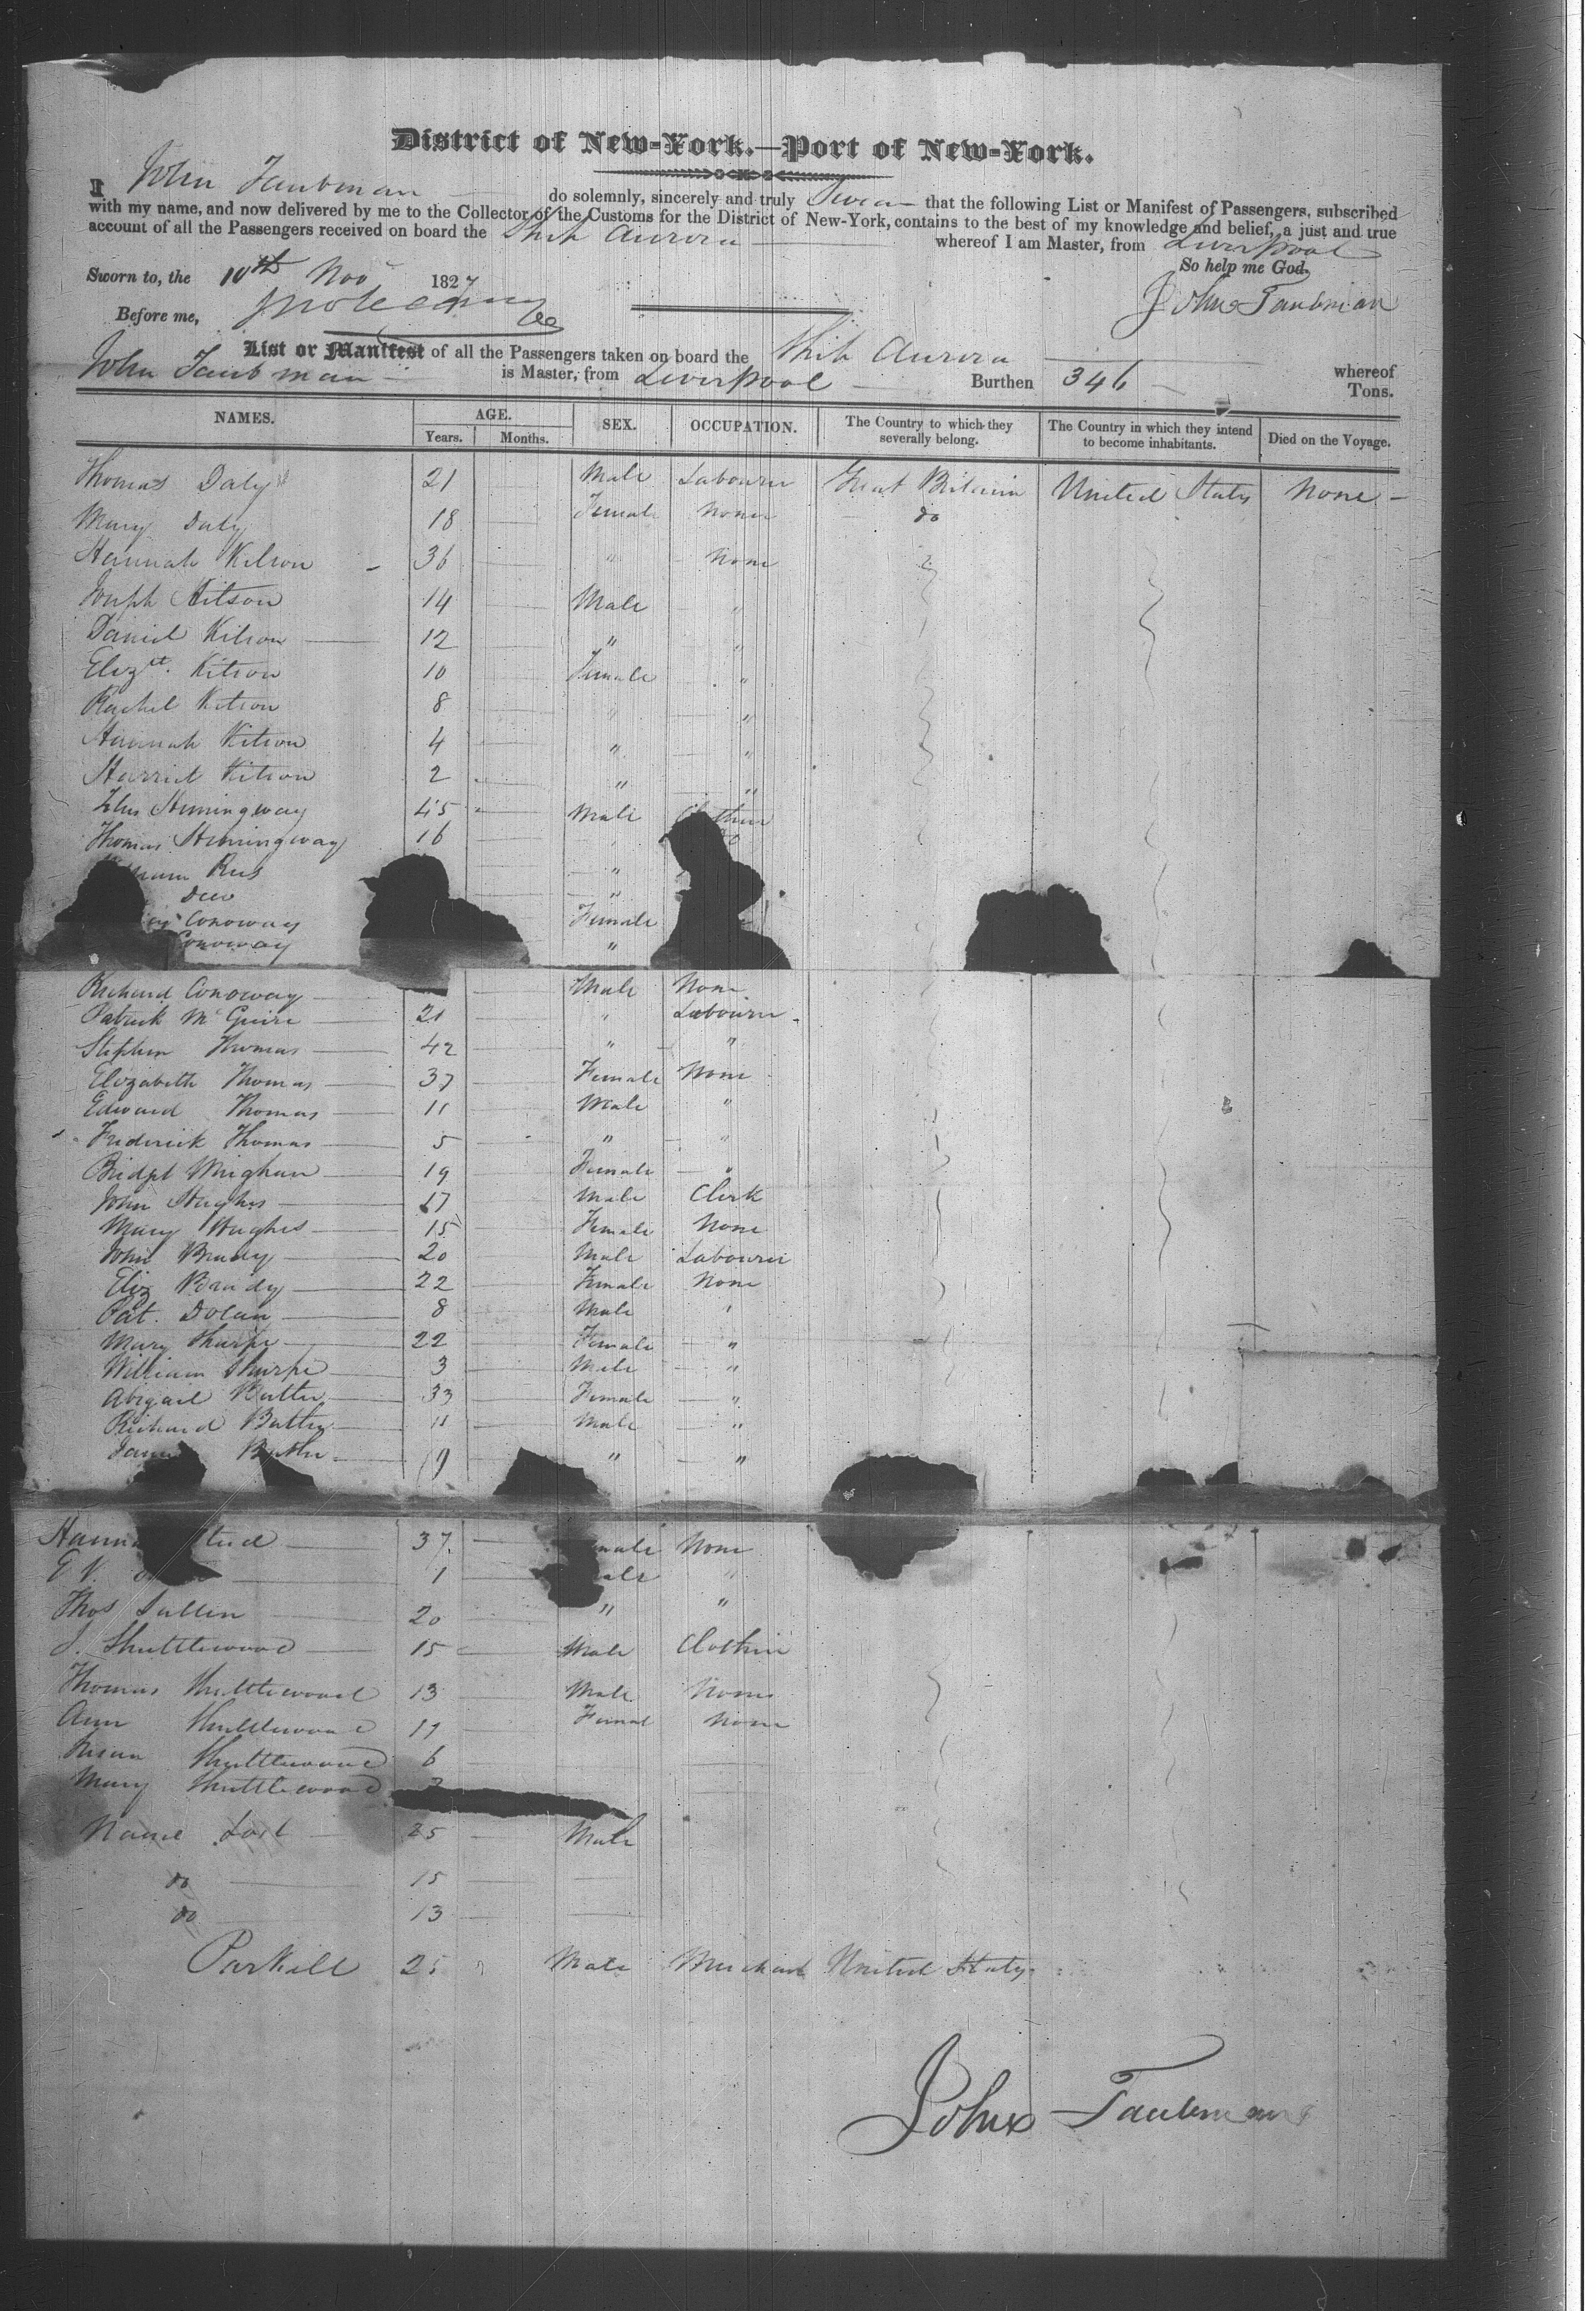 District of New-York.—Port of New-York.
I John Taubman do solemnly, sincerely and truly Swear that the following List or Manifest of Passengers, subscribed
with my name, and now delivered by me to the Collector of the Customs for the District of New-York, contains to the best of my knowledge and belief, a just and true
account of all the Passengers received on board the Ship Aurora whereof I am Master, from Liverpool
So help me God.
Sworn to, the 10th Nov 1827
John Taubman
Before me,
List or Manifest of all the Passengers taken on board the Ship Aurora whereof
John Taubman is Master, from Liverpool Burthen 346 Tons.
NAMES. AGE. SEX. OCCUPATION. The Country to which they severally belong. The Country in which they intend to become inhabitants. Died on the Voyage.
Years. Months.
Thomas Daly 21 Male Labourer Great Britain United States None
Mary Daly 18 Female None do
Hannah Kitson 36 " None
Joseph Kitson 14 Male "
Daniel Kitson 12 " "
Elizt. Kitson 10 Female "
Rachel Kitson 8 " "
Hannah Kitson 4 " "
Harriet Kitson 2 " "
Hemingway 45 Male
Thomas Hemingway 16
"
"
Conoway Female
Conoway "
Richard Conoway Male None
Patrick McGuire 21 " Labourer
Stephen Thomas 42 " "
Elizabeth Thomas 37 Female None
Edward Thomas 11 Male "
Frederick Thomas 5 " "
Bridget Meighan 19 Female "
John Hughes 17 Male Clerk
Mary Hughes 15 Female None
John Brady 20 Male Labourer
Eliz Brady 22 Female None
Pat. Dolan 8 Male "
Mary Sharpe 22 Female "
William Sharpe 3 Male "
Abigail Butler 33 Female "
Richard Butler 11 Male "
Butler 9 " "
37 None
1 "
Thos 20 " "
J. Shuttlewood 15 Male Clothier
Thomas Shuttlewood 13 Male None
Ann Shuttlewood 11 Femal None
Susan Shuttlewood 6
Mary Shuttlewood
Name Lost 25 Male
do 15
do 13
Parkill 25 Male Merchant United States
John Taubman